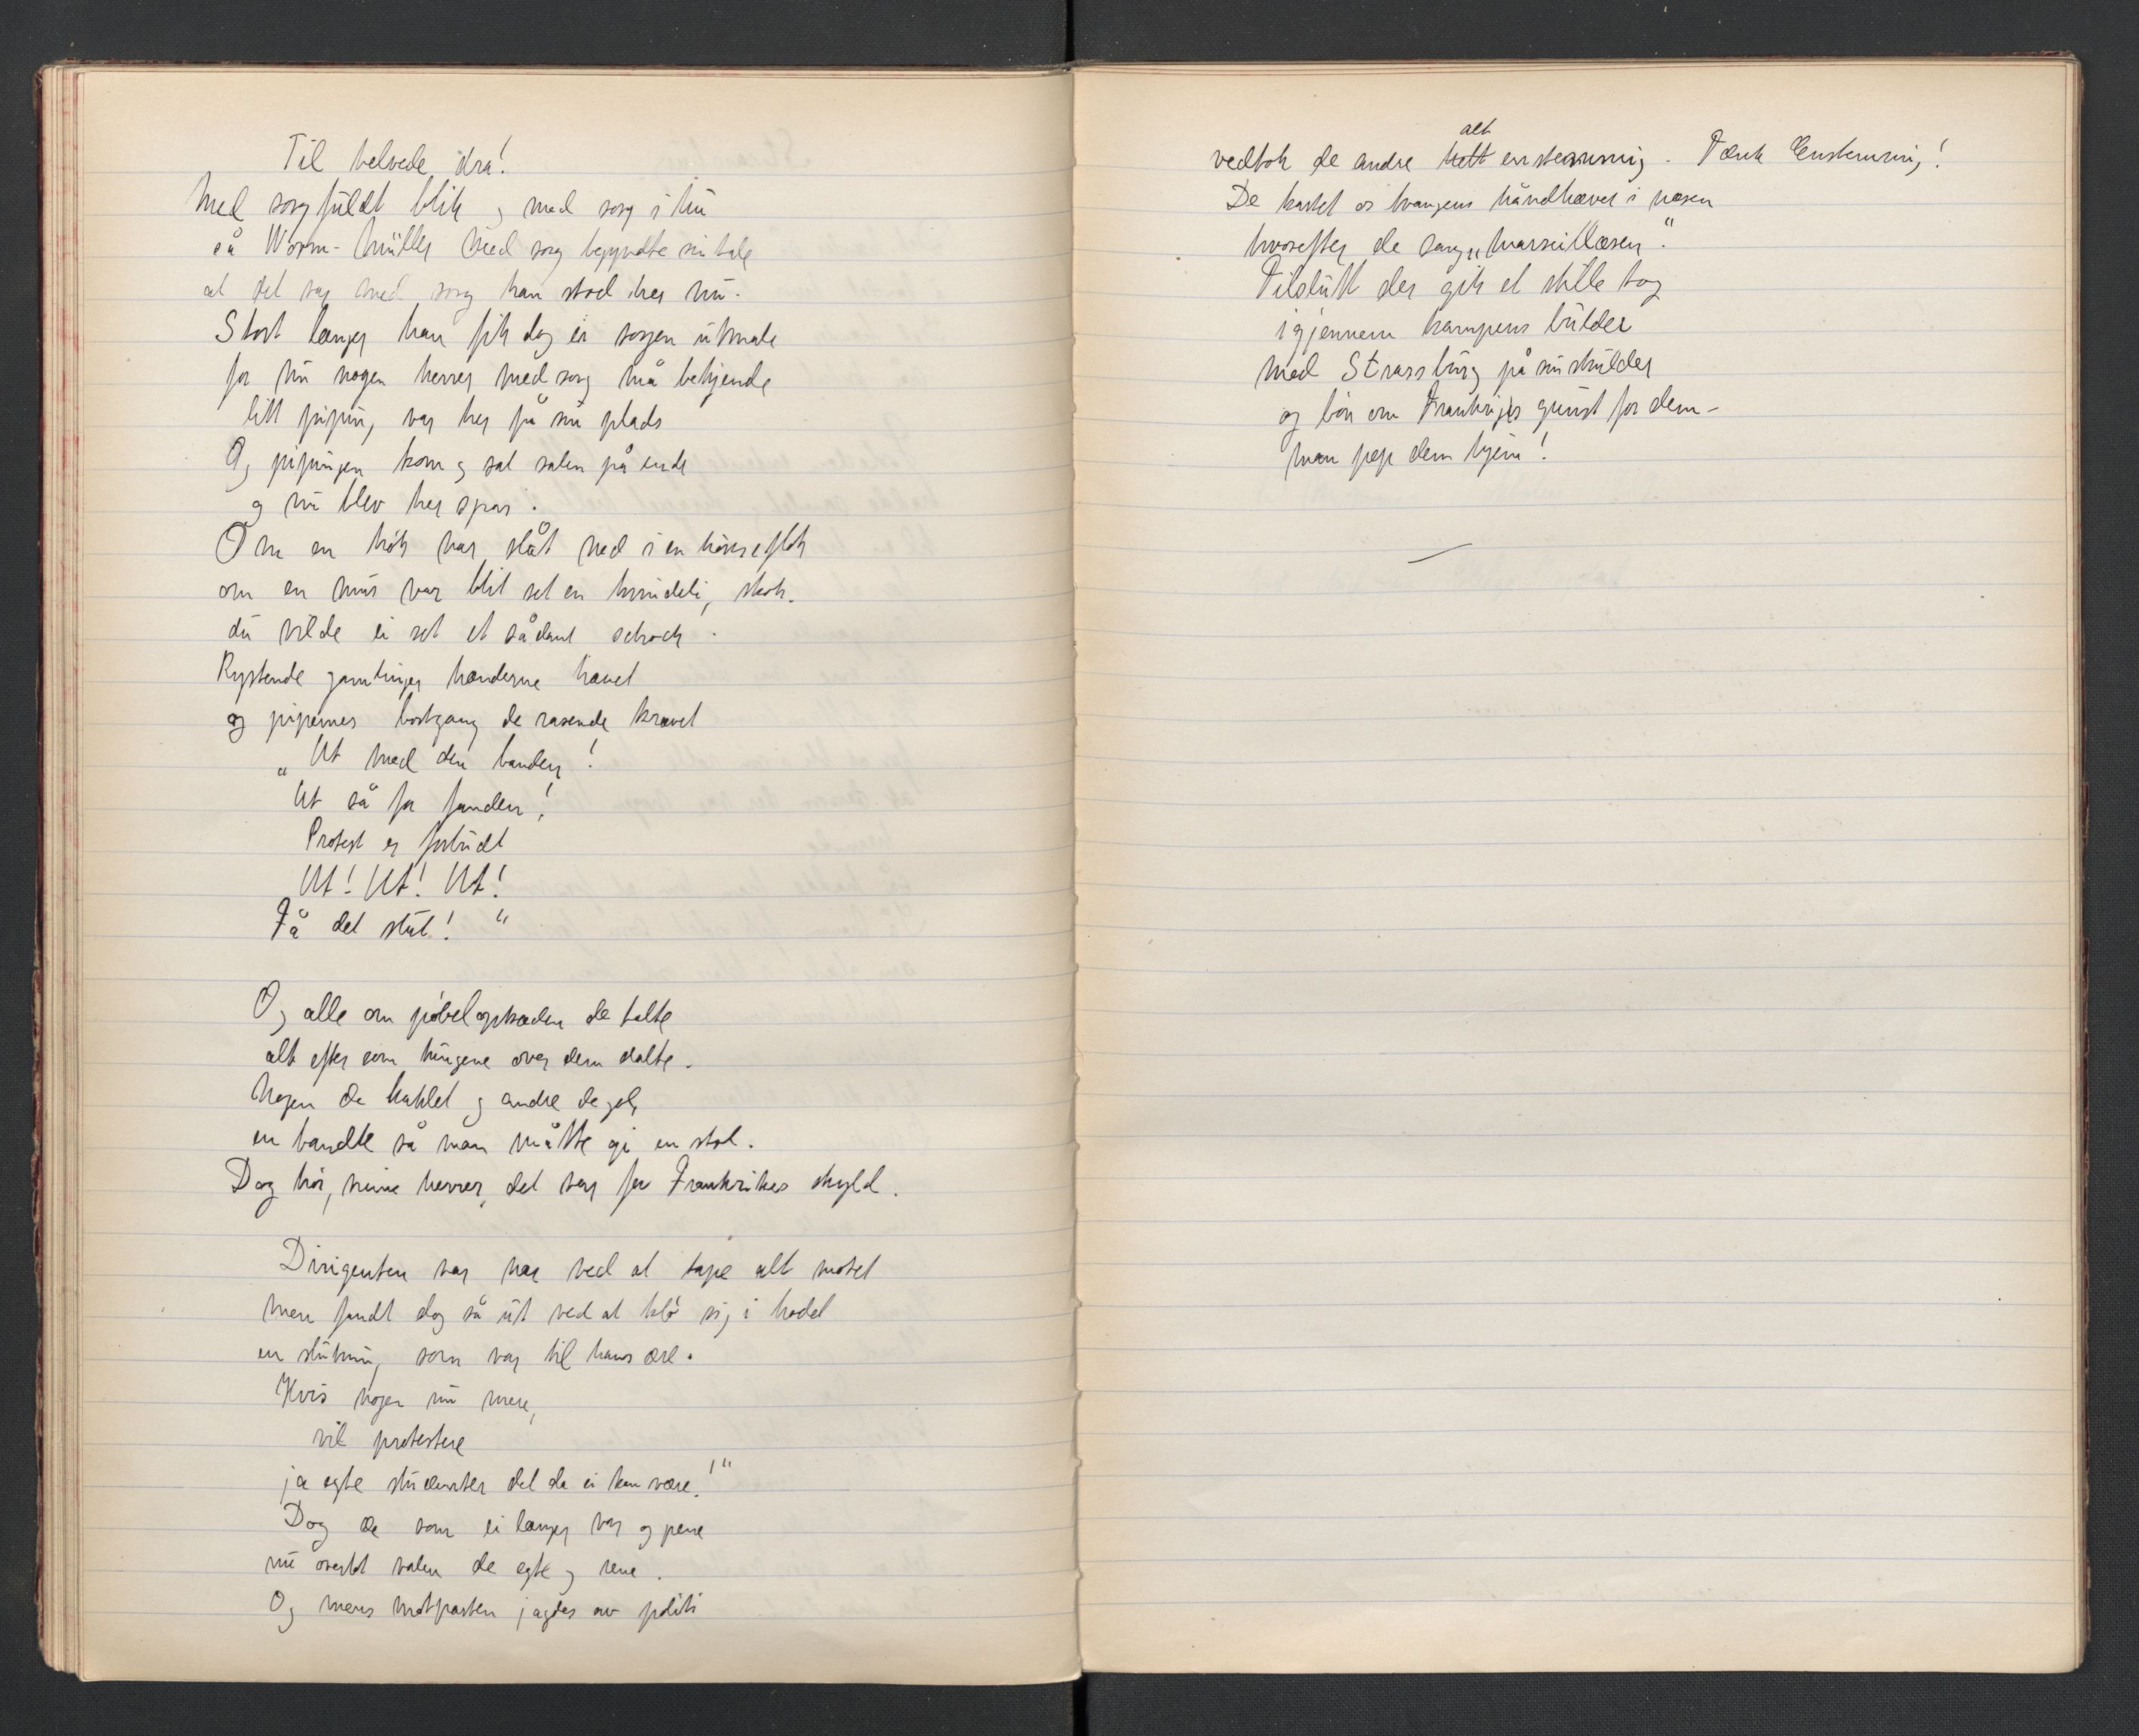 Til helvede dra!
Med sorgfuldt blik og med sorg i hu
så Worm-Müller med sorg begyndte sin tale
at det var med sorg han stod her nu.
Stort længer han fik dog ei sorgen utmale
for nu nogen herrer med sorg må bekjende
litt piping var her på sin plads
Og pipingen kom og sat salen på ende
og nu blev her spas.
Om en høk var slåt ned i en hønseflok
om en mus var blit set en kvindelig skok.
du vilde ei set et sådant schock.
Rystende gamlinger hænderne hævet
og pipernes bortgang de rasende krævet
„Ut med den banden!
Ut så for fanden!
Protest er forbudt
Ut! Ut! Ut!
Få det slut!"
Og alle om pøbelopkaden de talte
alt efter som tingene over dem dalte.
Nogen de kaklet og andre de gol,
en bandte så man måtte gi en stol.
Dog hør, mine herrer, det var for Frankrikes skyld.
Dirigenten var nær ved at tape alt motet
men fandt dog så ut ved at klø sig i hodet
en slutning som var til hans ære.
Hvis nogen nu mere,
vil protestere
ja egte studenter det da ei kan være!"
Dog de som ei længer var og pene
nu overlot salen de egte og rene.
Og mens motparten jagdes av politi
vedtok de andre alt enstemmig. Tænk Enstemmig!
De kastet os tvangens håndhæver i næsen
hvorefter de sang „Marseillæsen".
Tilslutt der gik et stille tog
igjennem kampens bulder
med Strassburg på sin skulder
og bøn om Frankriges gunst for dem –
Man pep dem hjem!